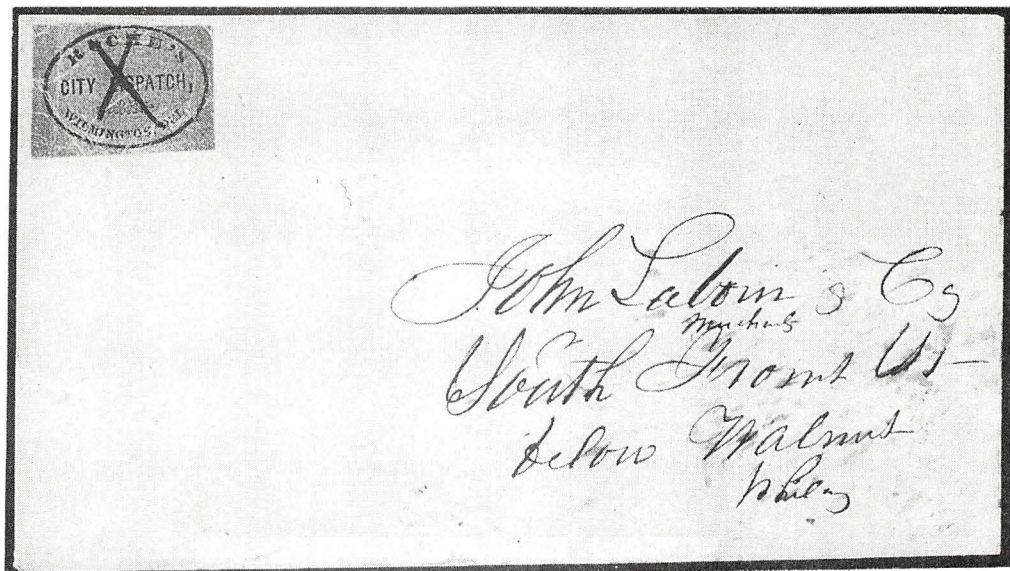 ROCHE'S
CITY DISPATCH,
WILMINGTON DEL.
John Laborn & Co
Merchants
South Front St
below Walnut
Phila